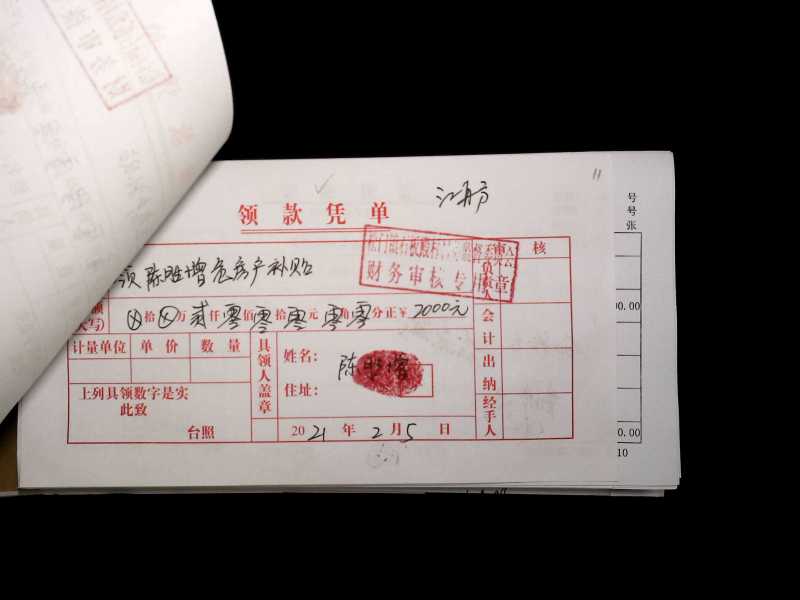 11
号
号
张
领款凭单
财务审核专用章
领陈胜增危房产补贴
⊗拾⊗万贰仟零佰零拾零元零角零分正¥2000元
大写)
计量单位 单价 数量
上列具领数字是实
此致
台照
具领人盖章
姓名:
住址:
2021年2月5日
核
负责人
会计
出纳
经手人
00.00
0.00
10